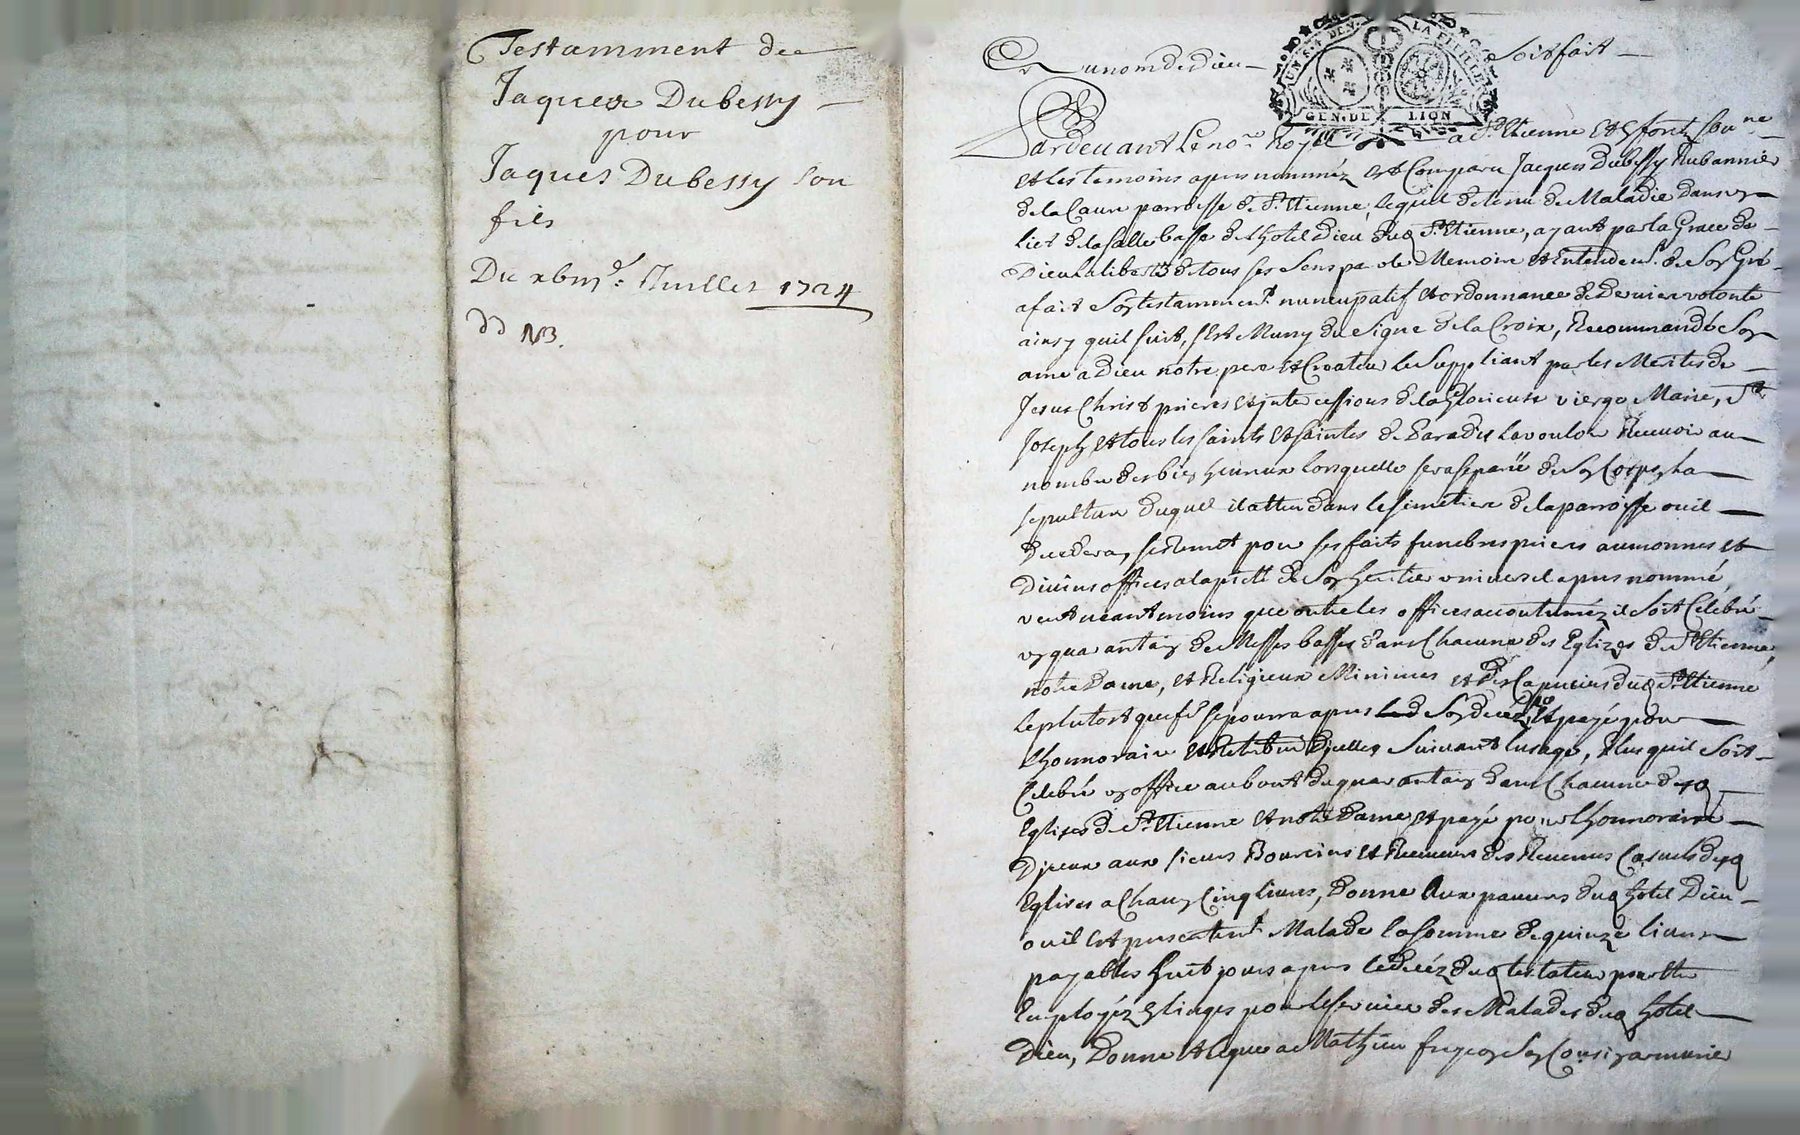 Testamment de
Jaques Dubessy
pour
Jaques Dubessy son
fils
Du xbiij.e Juillet 1724
NB.
Au nom de dieu soit fait
UN S. 4 DEN. LA FEUILLE
GEN. DE LION
Pardevant le no.re Royal a St Etienne
et les temoins apres nomméz est Comparu Jacques Dubessy Rubannier
de la parroisse de St. Etienne, lequel detenu de Maladie dans un
lict de la salle basse de l'hotel Dieu dud St Etienne, ayant par la Grace de
Dieu la liberté de tous ses sens parole Memoire et Entendem.t de son Gré
a fait son testamment nuncupatif et ordonnance de Derniere volonté
ainsy quil suit, s'est Muny du signe de la Croix, Recommandé son
ame a Dieu notre pere et Createur le suppliant par les Merites de
Jesus Christ prieres et intercessions de la Glorieuse vierge Marie, St
Joseph et tous les saints et saintes de Paradis la vouloir Recevoir au
nombre des bien heureux lorsquelle sera separée de son Corps, la
sepulture duquel il a dans le simetiere de la parroisse ou il
decedera, se remet pour ses faits funebres prieres aumonnes et
Divins offices a la pieté de son heritier universel apres nommé
veut neantmoins que outre les offices accoutuméz il soit Celebré
un quarantain de Messes basses dans Chacune des Eglizes de St Etienne,
notre Dame, et Religieux Minimes et des Capucins dud St Etienne
le plutost que se pourra apres son decéz, et payé pour
lhonnoraire et Retribution dicelles suivant lusage, Plus quil soit
Celebré un office au bout du quarantain dans Chacune desd
Eglises de St Etienne et notre Dame et payé pour lhonnoraire
Diceux aux sieurs et Receveurs des Revenus Casuels desd
Eglises a Chacun Cinq livres, Donne Aux pauvres dud hotel Dieu
ou il est presentem.t Malade la somme de quinze livres
payables huit jours apres le decéz dud testateur pour etre
Employéz En linges pour le service des Malades dud hotel
Dieu, Donne et legue a Mathieu son Cousin armurier